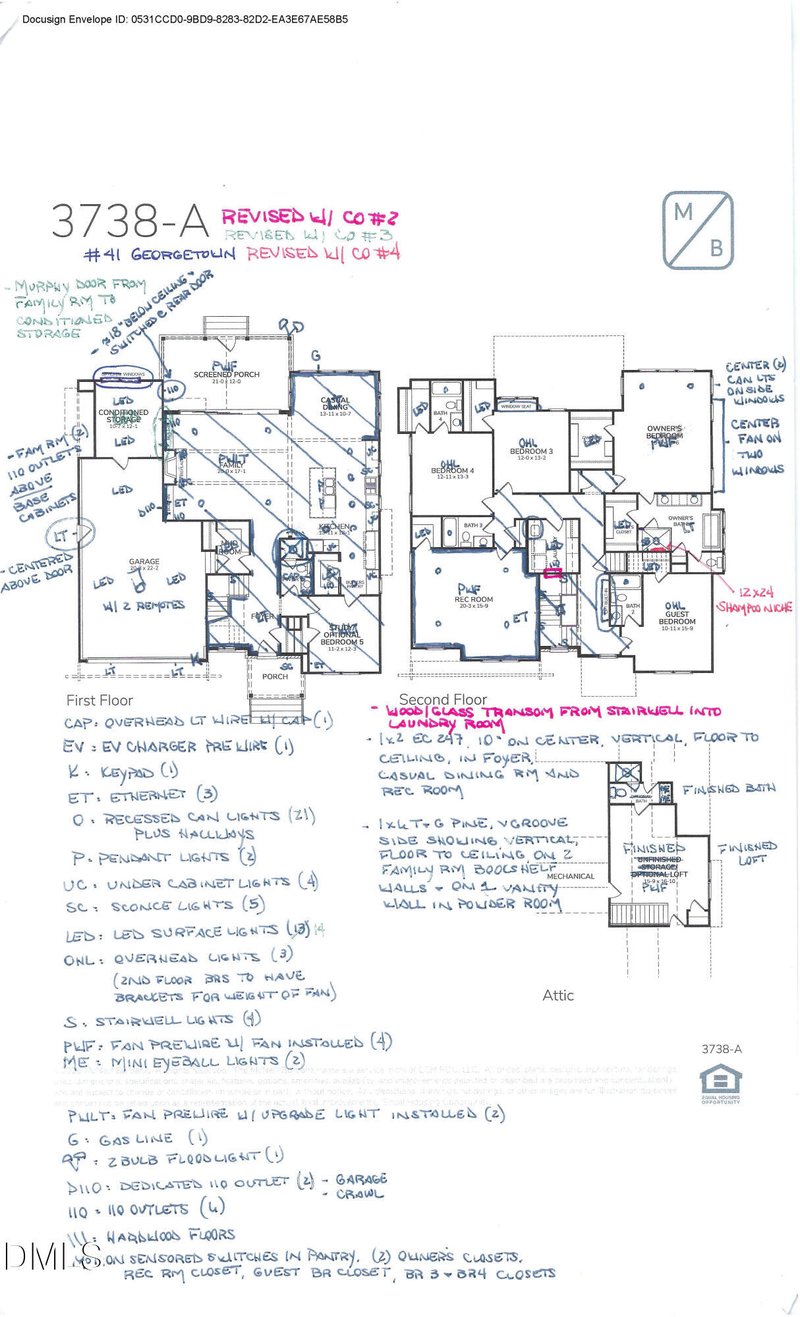 Docusign Envelope ID: 0531CCD0-9BD9-8283-82D2-EA3E67AE58B5
3738-A REVISED W/ CO #2
REVISED W/ CO #3
#41 GEORGETOWN REVISED W/ CO #4
M
B
- MURPHY DOOR FROM
FAMILY RM TO
CONDITIONED
STORAGE
- #18" BELOW CEILING +
SWITCHED @ REAR DOOR
- FAM RM (2)
110 OUTLETS
ABOVE
BASE
CABINETS
LT
- CENTERED
ABOVE DOOR
PWF
SCREENED PORCH
21-0 x 12-0
G
CASUAL
DINING
13-11 x 10-7
LED
CONDITIONED
STORAGE
LED
110
PWLT
FAMILY
KITCHEN
LED
D110
ET
110
GARAGE
20-4 x 22-2
LED
LED
W/ 2 REMOTES
MUD
ROOM
CAP
LED
FOYER
STUDY
OPTIONAL
BEDROOM 5
11-2 x 12-3
ET
SC
PORCH
LT
LT
K
LED
BATH
4
LED
WINDOW SEAT
OHL
BEDROOM 3
12-0 x 13-2
OHL
BEDROOM 4
12-11 x 13-3
LED
BATH 3
PWF
REC ROOM
20-3 x 15-9
ET
LED
OWNER'S
BEDROOM
PWF
LED
CLOSET
OWNER'S
BATH
LED
BATH
2
OHL
GUEST
BEDROOM
10-11 x 15-9
CENTER (2)
CAN LTS
ON SIDE
WINDOWS
CENTER
FAN ON
TWO
WINDOWS
12x24
SHAMPOO NICHE
First Floor
Second Floor
- WOOD/GLASS TRANSOM FROM STAIRWELL INTO
LAUNDRY ROOM
- 1x2 EC 247, 10" ON CENTER, VERTICAL, FLOOR TO
CEILING, IN FOYER,
CASUAL DINING RM AND
REC ROOM
- 1x6 T+G PINE, VGROOVE
SIDE SHOWING VERTICAL,
FLOOR TO CEILING ON 2
FAMILY RM BOOKSHELF
WALLS + ON 1 VANITY
WALL IN POWDER ROOM
FINISHED BATH
OPTIONAL
BATH
FINISHED
UNFINISHED
STORAGE/
OPTIONAL LOFT
15-9 x 16-10
PWF
FINISHED
LOFT
MECHANICAL
Attic
CAP: OVERHEAD LT WIRE W/ CAP (1)
EV: EV CHARGER PREWIRE (1)
K: KEYPAD (1)
ET: ETHERNET (3)
O: RECESSED CAN LIGHTS (21)
PLUS HALLWAYS
P: PENDANT LIGHTS (2)
UC: UNDER CABINET LIGHTS (4)
SC: SCONCE LIGHTS (5)
LED: LED SURFACE LIGHTS (13) 14
OHL: OVERHEAD LIGHTS (3)
(2ND FLOOR BRS TO HAVE
BRACKETS FOR WEIGHT OF FAN)
S: STAIRWELL LIGHTS (4)
PWF: FAN PREWIRE W/ FAN INSTALLED (4)
ME: MINI EYEBALL LIGHTS (2)
3738-A
EQUAL HOUSING
OPPORTUNITY
PWLT: FAN PREWIRE W/ UPGRADE LIGHT INSTALLED (2)
G: GAS LINE (1)
: 2 BULB FLOODLIGHT (1)
D110: DEDICATED 110 OUTLET (2) - GARAGE
- CRAWL
110: 110 OUTLETS (6)
\\\: HARDWOOD FLOORS
DMLS
MOTION SENSORED SWITCHES IN PANTRY, (2) OWNER'S CLOSETS,
REC RM CLOSET, GUEST BR CLOSET, BR 3 + BR4 CLOSETS